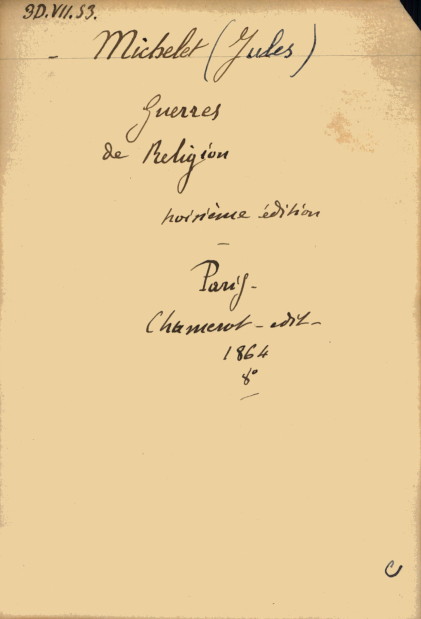 9D.VII.53.
- Michelet (Jules)
Guerres
de Religion
troisième édition
-
Paris -
Chamerot - edit -
1864
8°
C